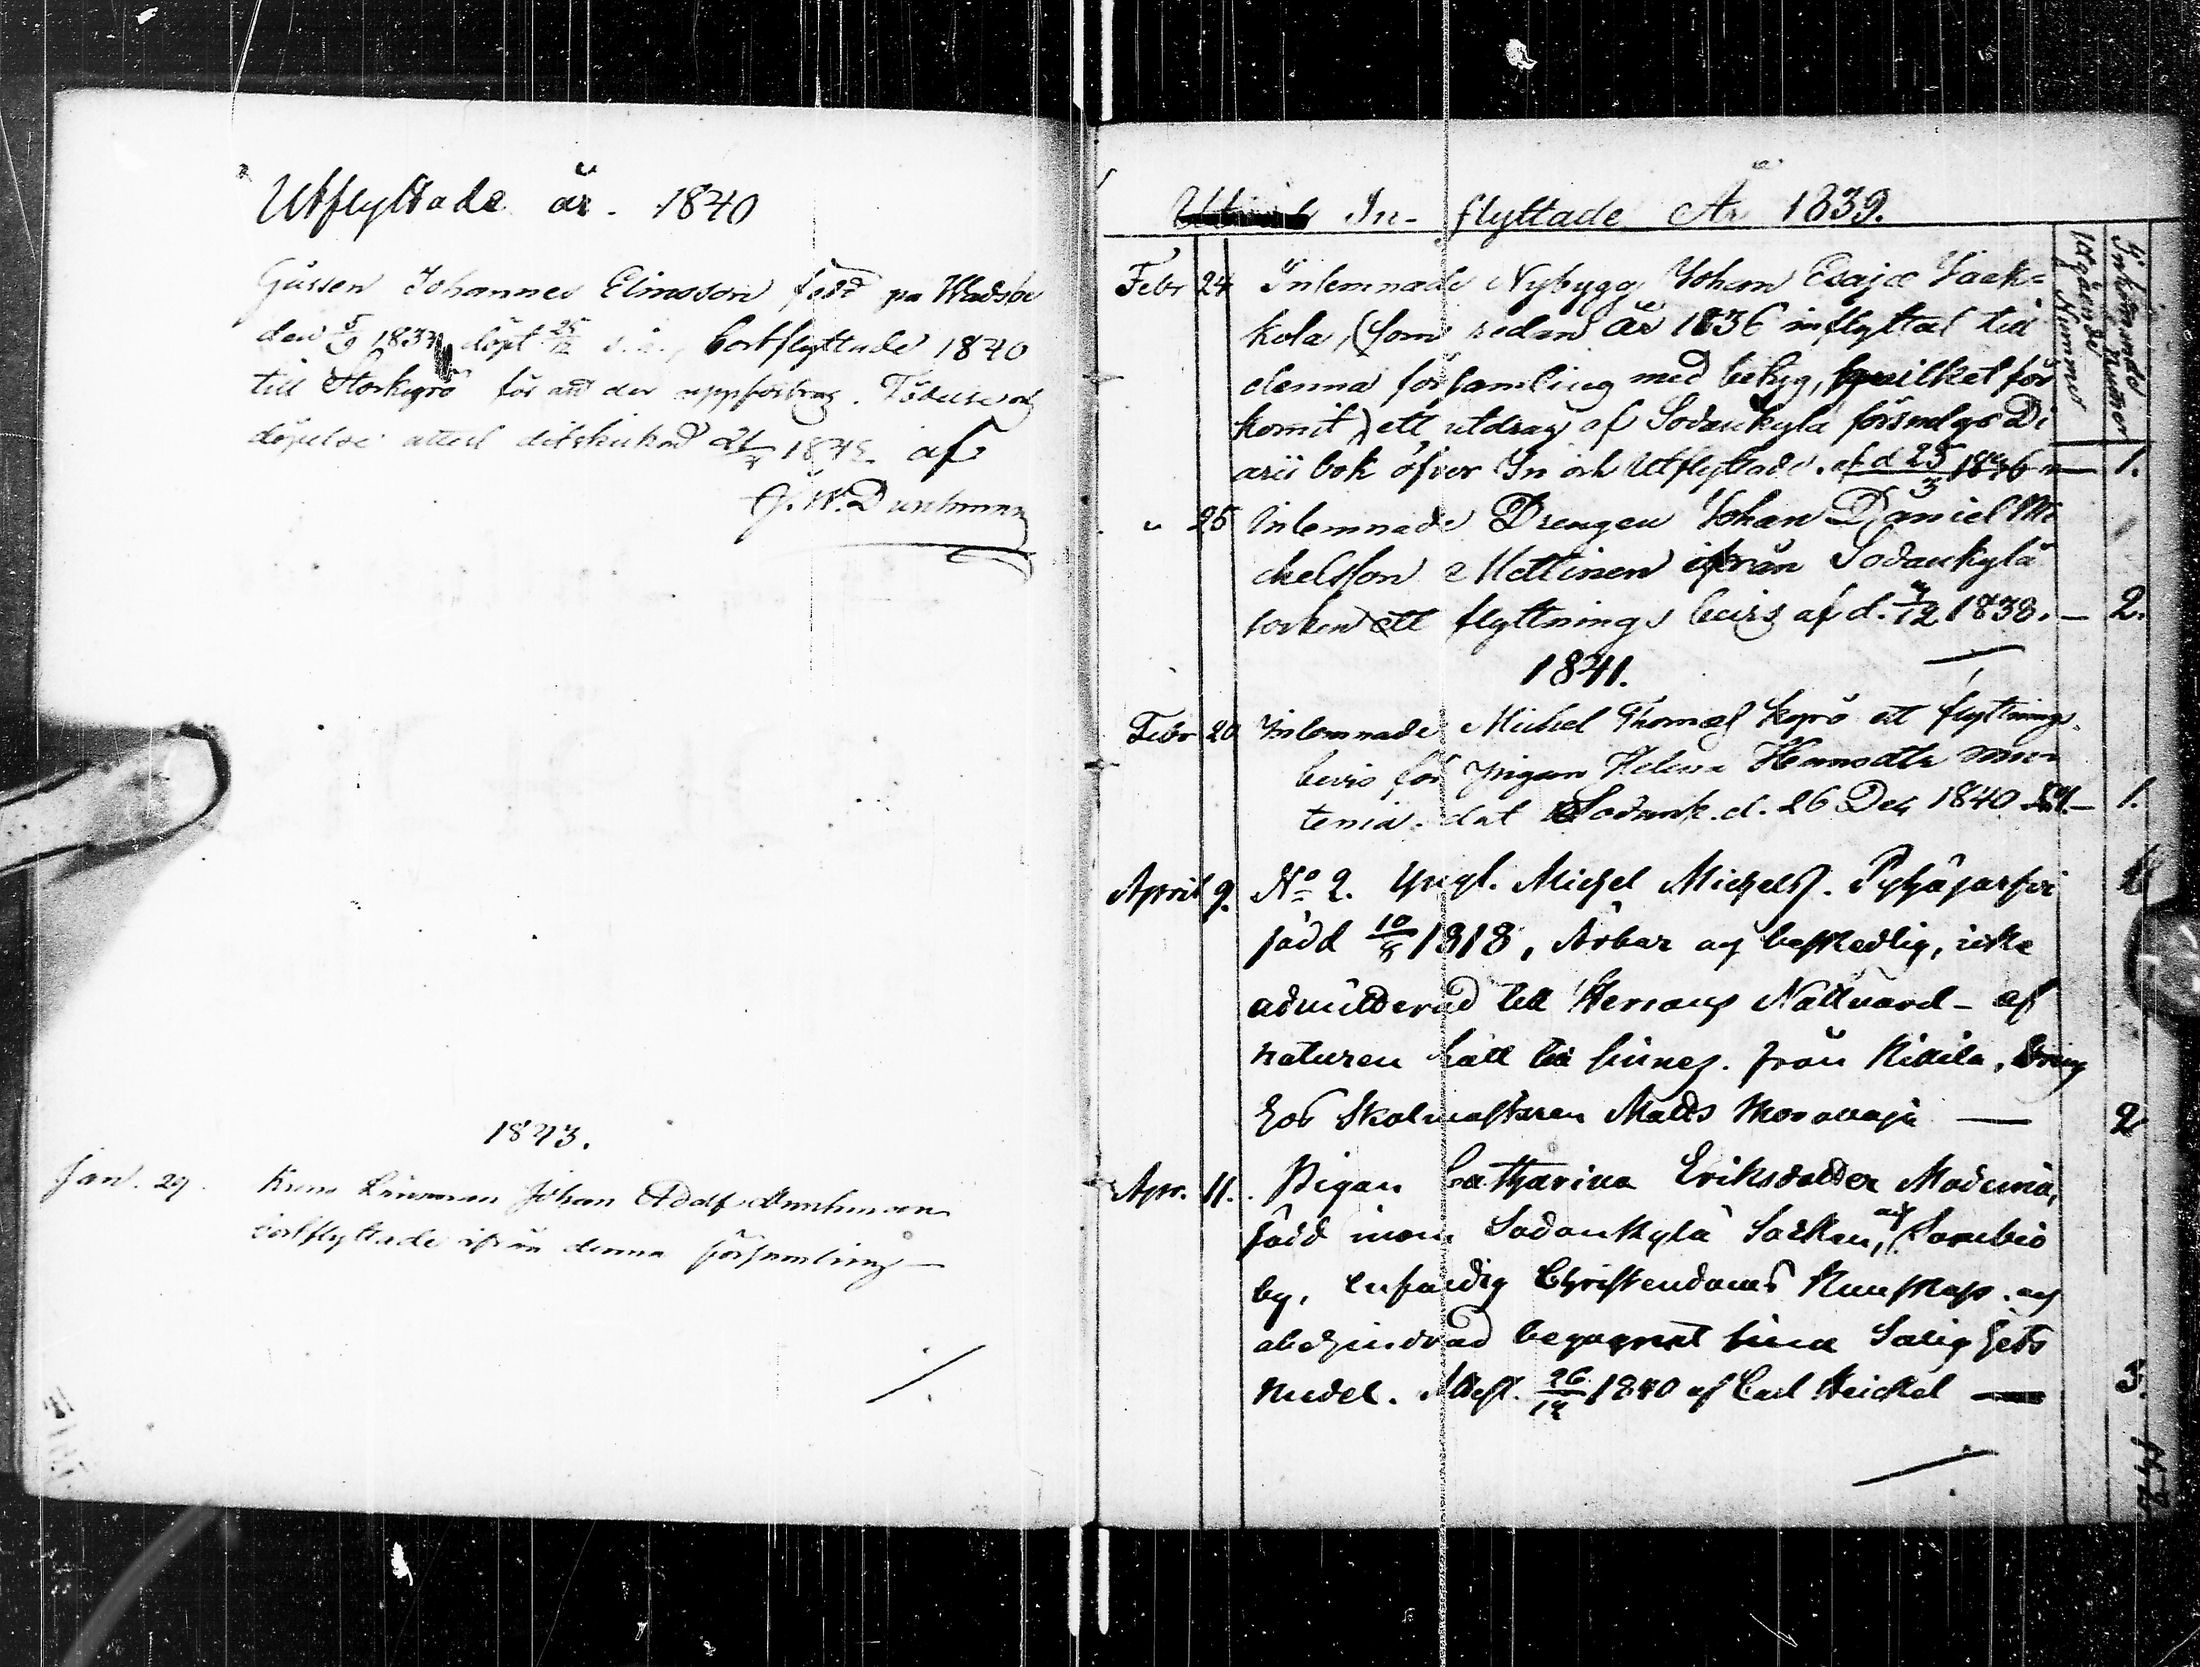 Utflyttade år. 1840
Gåssen Johannes Elimsson född på Wadsöe
den 5/9 1837 döpt 25/12 s. å., bortflyttade 1840
till Storkyrö för att der uppfostras. Födelse och
döpelse attest ditskickad 21/ 184 af
J. W. Durchman
1843.
Jan. 29. Krono Länsman Johan Adolf Durchman
bortflyttade ifrån denna församling
In-flyttade År 1839.
Utgående Nummer
Inkommande Nummer
Febr 24 Inlemnade Nybygg Johan Esajæ Jack=
kola, (som redan År 1836 inflyttat till
denna församling med betyg, hvilket för
komit) ett utdrag af Sodankylä församlgs Di
arii bok öfver In och Utflyttade. af d 25/3 1836 — 1.
" 25 Inlemnade Drengen Johan Daniel Mi
chelsson Mettinen ifrån Sodankylä
socken ett flyttnings bevis af d. /12 1838. — 2.
1841.
Febr 20 Inlemnade Michel Thomas Kyrö ett flyttnings
bevis för pigan Helena Hansdtr
tenia. dat Sodank. d. 26 Dec 1840 — 1.
April 9. No 2. Yngl. Michel Michelss. Pyhäjärfvi
född 10/8 1818, Ärbar och beskedlig, icke
admitterad till Herrans Nattvard - af
naturen fått till sinnes. från Kittilä, Dreng
hos Skolmästaren Matts — 2
Apr. 11. Pigan Catharina Eriksdotter
född inom Sodankylä Socken, och Sombio
by, Christendoms Kunskap. och
obehindrad begagnat sina Salighets
medel. Attest. 26/12 1840 af Carl Heickel — 3.